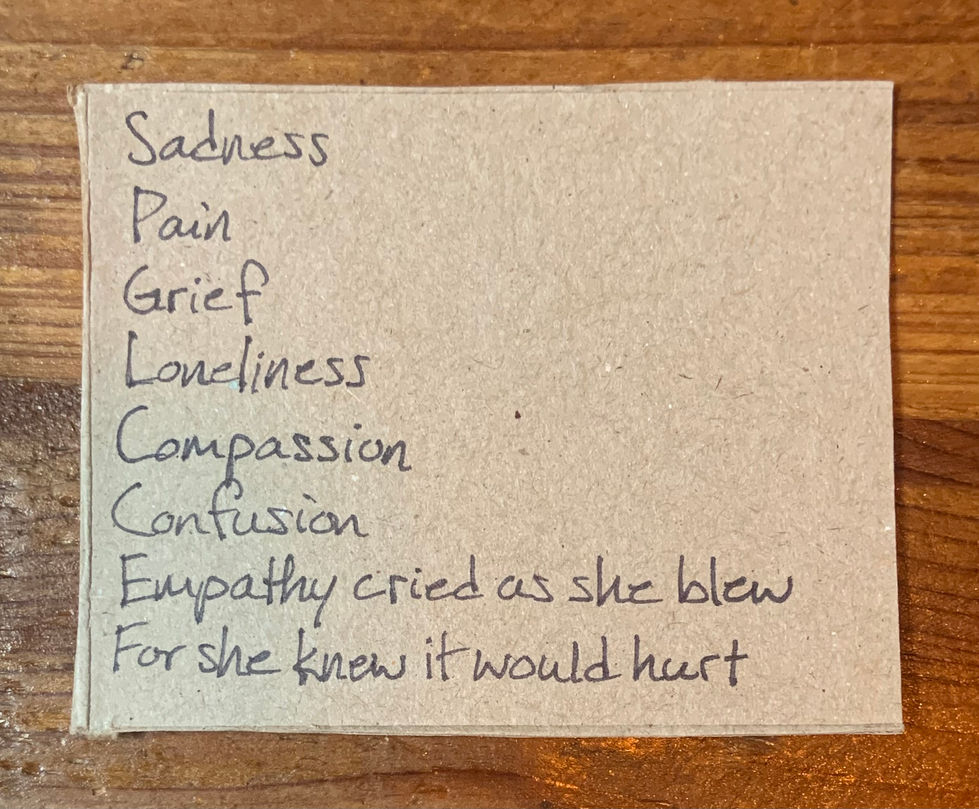 Sadness
Pain
Grief
Loneliness
Compassion
Confusion
Empathy cried as she blew
For she knew it would hurt